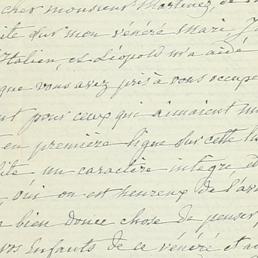 cher monsieur Martinez, de
ite sur mon vénéré mari. J
'Italien, et Léopold m'a aidé
que vous avez pris à vous occupe
nt pour ceux qui aimaient m
t en première ligne sur cette l
ite un caractère intègre, d
, qui on est heureux de l'av
a bien douce chose de penser
vos Enfants de ce vénéré et a